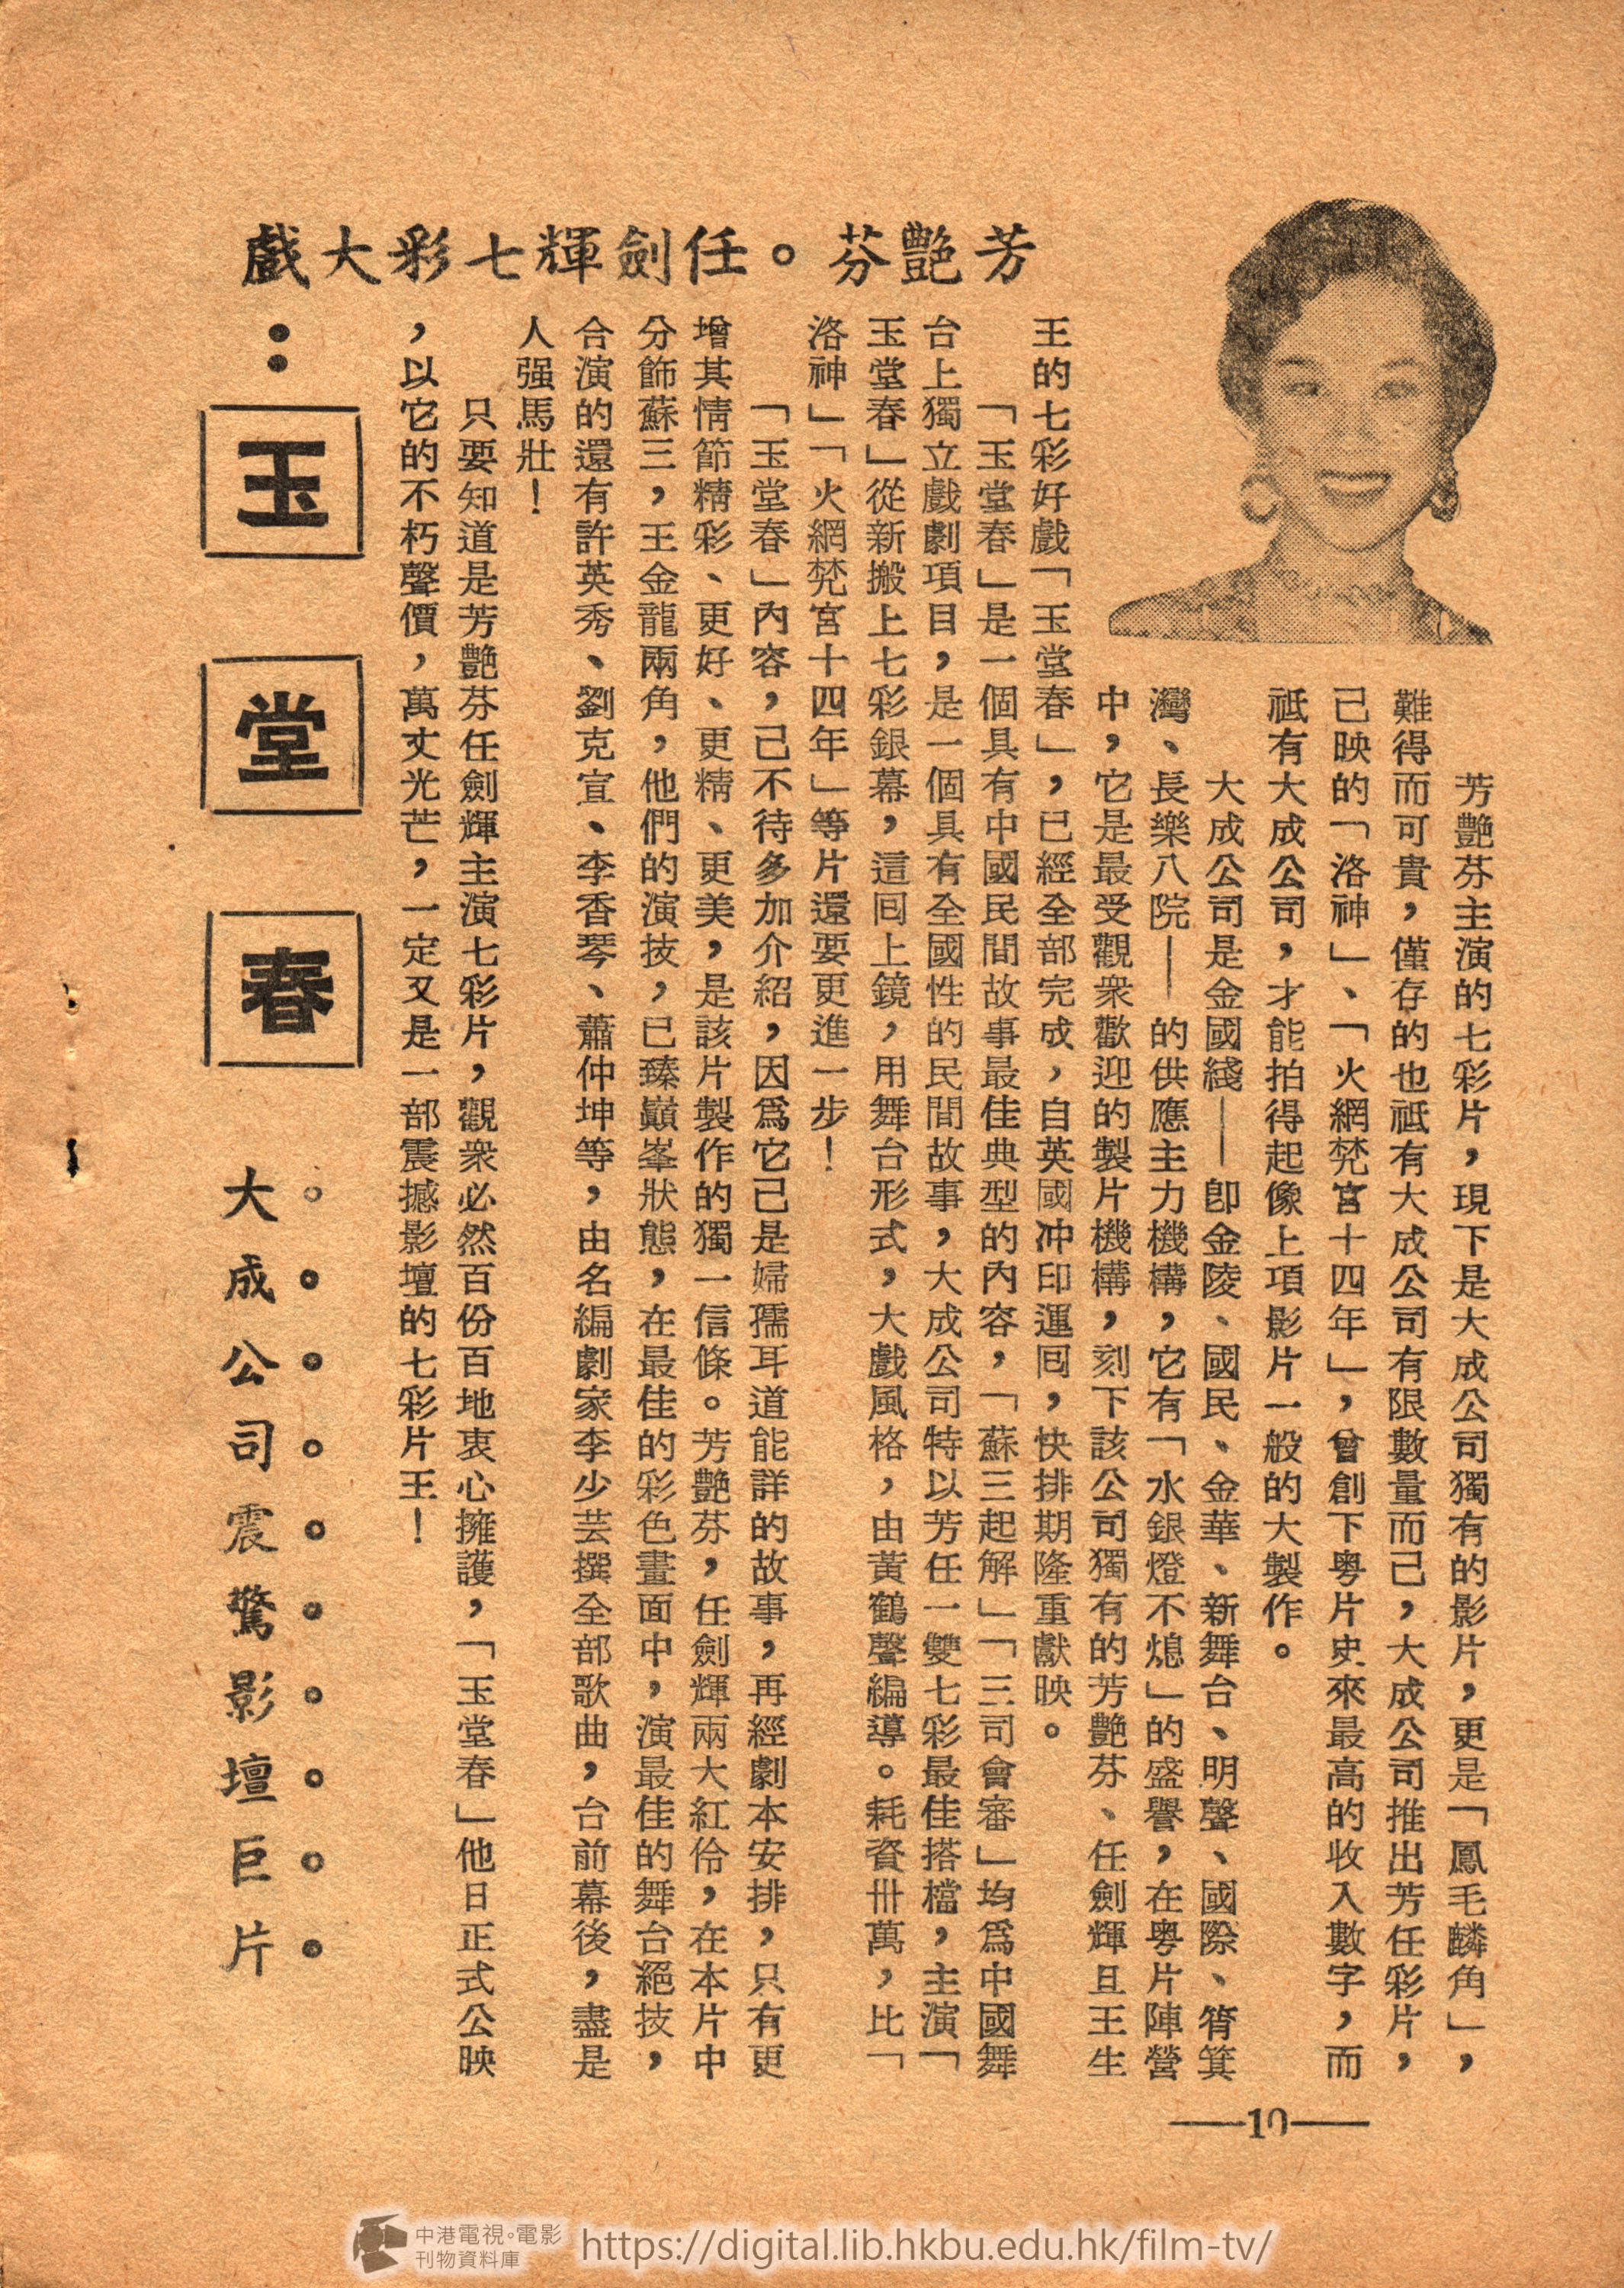 芳艷芬。任劍輝七彩大戲
：玉堂春
大成公司震驚影壇巨片
。。。。。。。。。。
芳艷芬主演的七彩片，現下是大成公司獨有的影片，更是「鳳毛麟角」，
難得而可貴，僅存的也祗有大成公司有限數量而己，大成公司推出芳任彩片，
己映的「洛神」、「火網梵宮十四年」，曾創下粤片史來最高的收入數字，而
祗有大成公司，才能拍得起像上項影片一般的大製作。
大成公司是金國綫——卽金陵、國民、金華、新舞台、明聲、國際、筲箕
灣、長樂八院——的供應主力機構，它有「水銀燈不熄」的盛譽，在粤片陣營
中，它是最受觀衆歡迎的製片機構，刻下該公司獨有的芳艷芬、任劍輝旦王生
王的七彩好戲「玉堂春」，已經全部完成，自英國冲印運囘，快排期隆重獻映。
「玉堂春」是一個具有中國民間故事最佳典型的內容，「蘇三起解」「三司會審」均爲中國舞
台上獨立戲劇項目，是一個具有全國性的民間故事，大成公司特以芳任一雙七彩最佳搭檔，主演「
玉堂春」從新搬上七彩銀幕，這囘上鏡，用舞台形式，大戲風格，由黃鶴聲編導。耗資卅萬，比「
洛神」「火網梵宮十四年」等片還要更進一步！
「玉堂春」內容，己不待多加介紹，因爲它己是婦孺耳道能詳的故事，再經劇本安排，只有更
增其情節精彩、更好、更精、更美，是該片製作的獨一信條。芳艷芬，任劍輝兩大紅伶，在本片中
分飾蘇三，王金龍兩角，他們的演技，已臻巔峯狀態，在最佳的彩色畫面中，演最佳的舞台絕技，
合演的還有許英秀、劉克宣、李香琴、蕭仲坤等，由名編劇家李少芸撰全部歌曲，台前幕後，盡是
人强馬壯！
只要知道是芳艷芬任劍輝主演七彩片，觀衆必然百份百地衷心擁護，「玉堂春」他日正式公映
，以它的不朽聲價，萬丈光芒，一定又是一部震撼影壇的七彩片王！
——10——
中港電視。電影
刊物資料庫
https://digital.lib.hkbu.edu.hk/film-tv/